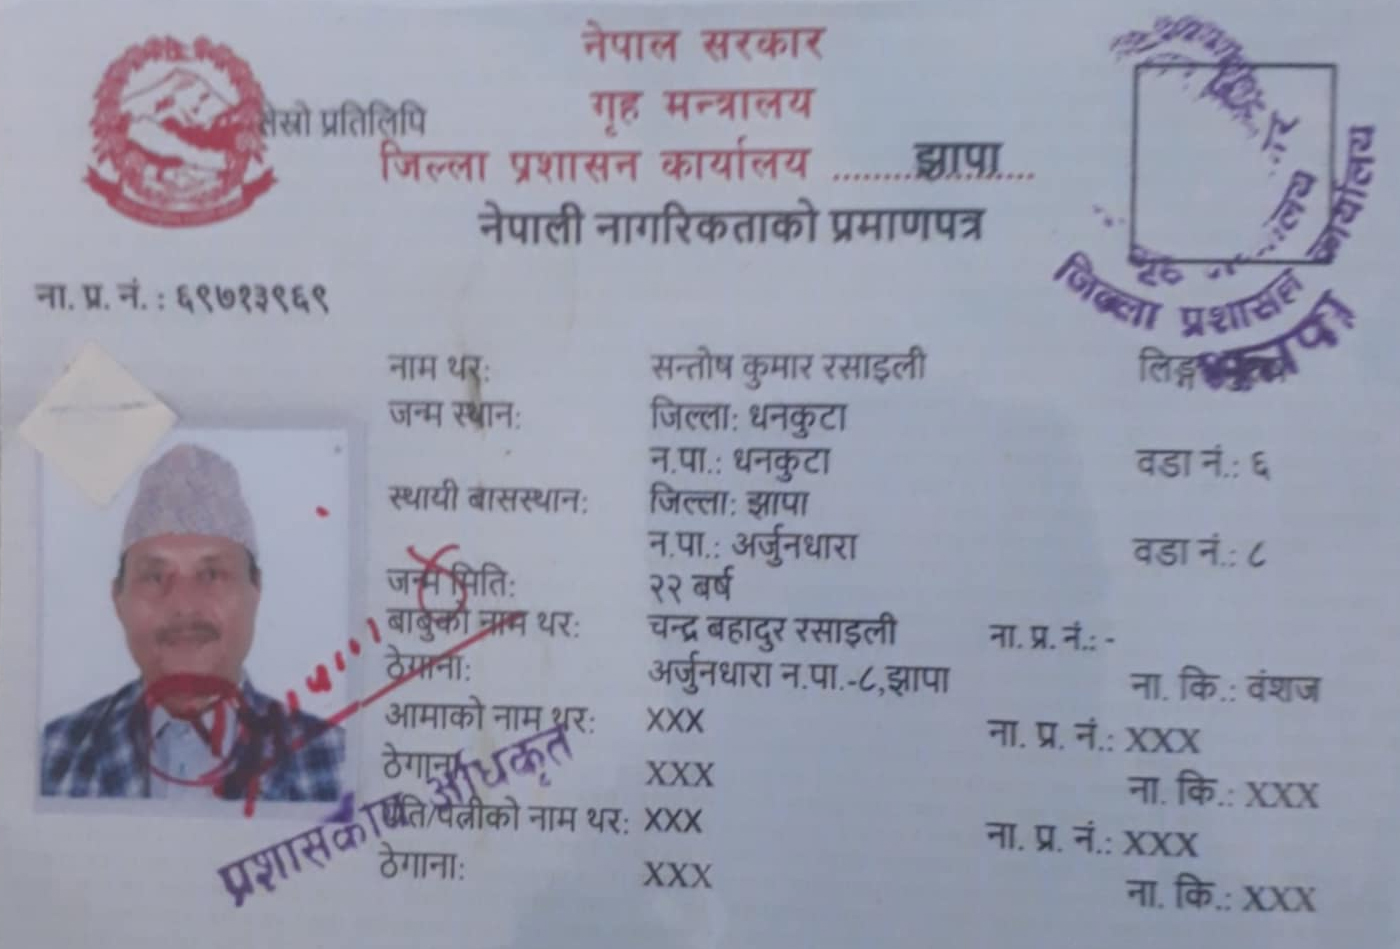 नेपाल सरकार
गृह मन्त्रालय
तेस्रो प्रतिलिपि
जिल्ला प्रशासन कार्यालय .........झापा.....
नेपाली नागरिकताको प्रमाणपत्र
जिल्ला प्रशासन कार्यालय
ना. प्र. नं. : ६९७१३९६९
नाम थर: सन्तोष कुमार रसाइली लिङ्ग
जन्म स्थान: जिल्ला: धनकुटा
न.पा.: धनकुटा वडा नं.: ६
स्थायी बासस्थान: जिल्ला: झापा
न.पा.: अर्जुनधारा वडा नं.: ८
जन्म मिति: २२ बर्ष
बाबुको नाम थर: चन्द्र बहादुर रसाइली ना. प्र. नं.:-
ठेगाना: अर्जुनधारा न.पा.-८,झापा ना. कि.: वंशज
आमाको नाम थर: XXX ना. प्र. नं.: XXX
ठेगाना: XXX ना. कि.: XXX
पति/पत्नीको नाम थर: XXX ना. प्र. नं.: XXX
ठेगाना: XXX ना. कि.: XXX
प्रशासकीय अधिकृत